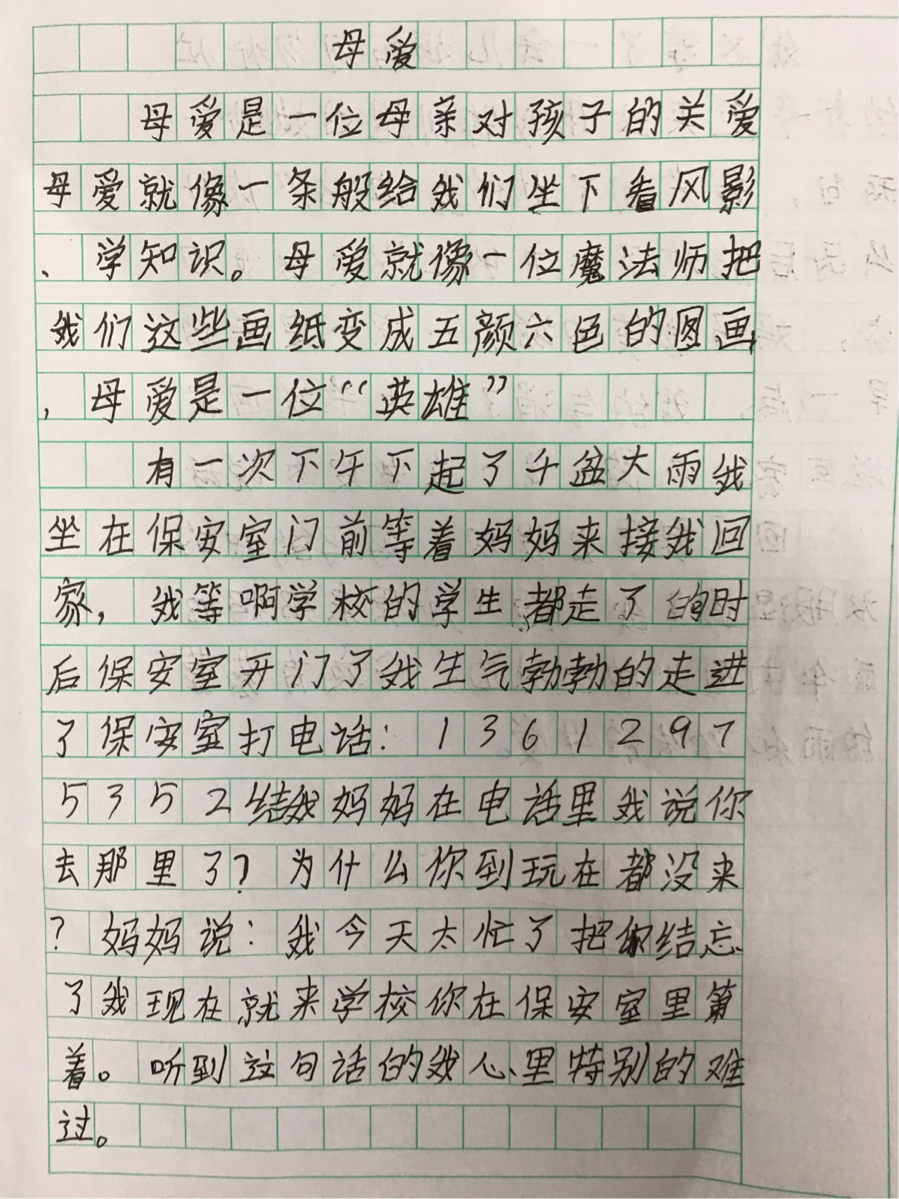 母爱
母爱是一位母亲对孩子的关爱
母爱就像一条般给我们坐下看风影
、学知识。母爱就像一位魔法师把
我们这些画纸变成五颜六色的图画
，母爱是一位“英雄”
有一次下午下起了千盆大雨我
坐在保安室门前等着妈妈来接我回
家，我等啊学校的学生都走了的时
后保安室开门了我生气勃勃的走进
了保安室打电话：1361297
5352结我妈妈在电话里我说你
去那里了？为什么你到玩在都没来
？妈妈说：我今天太忙了把你结忘
了我现在就来学校你在保安室里第
着。听到这句话的我心里特别的难
过。